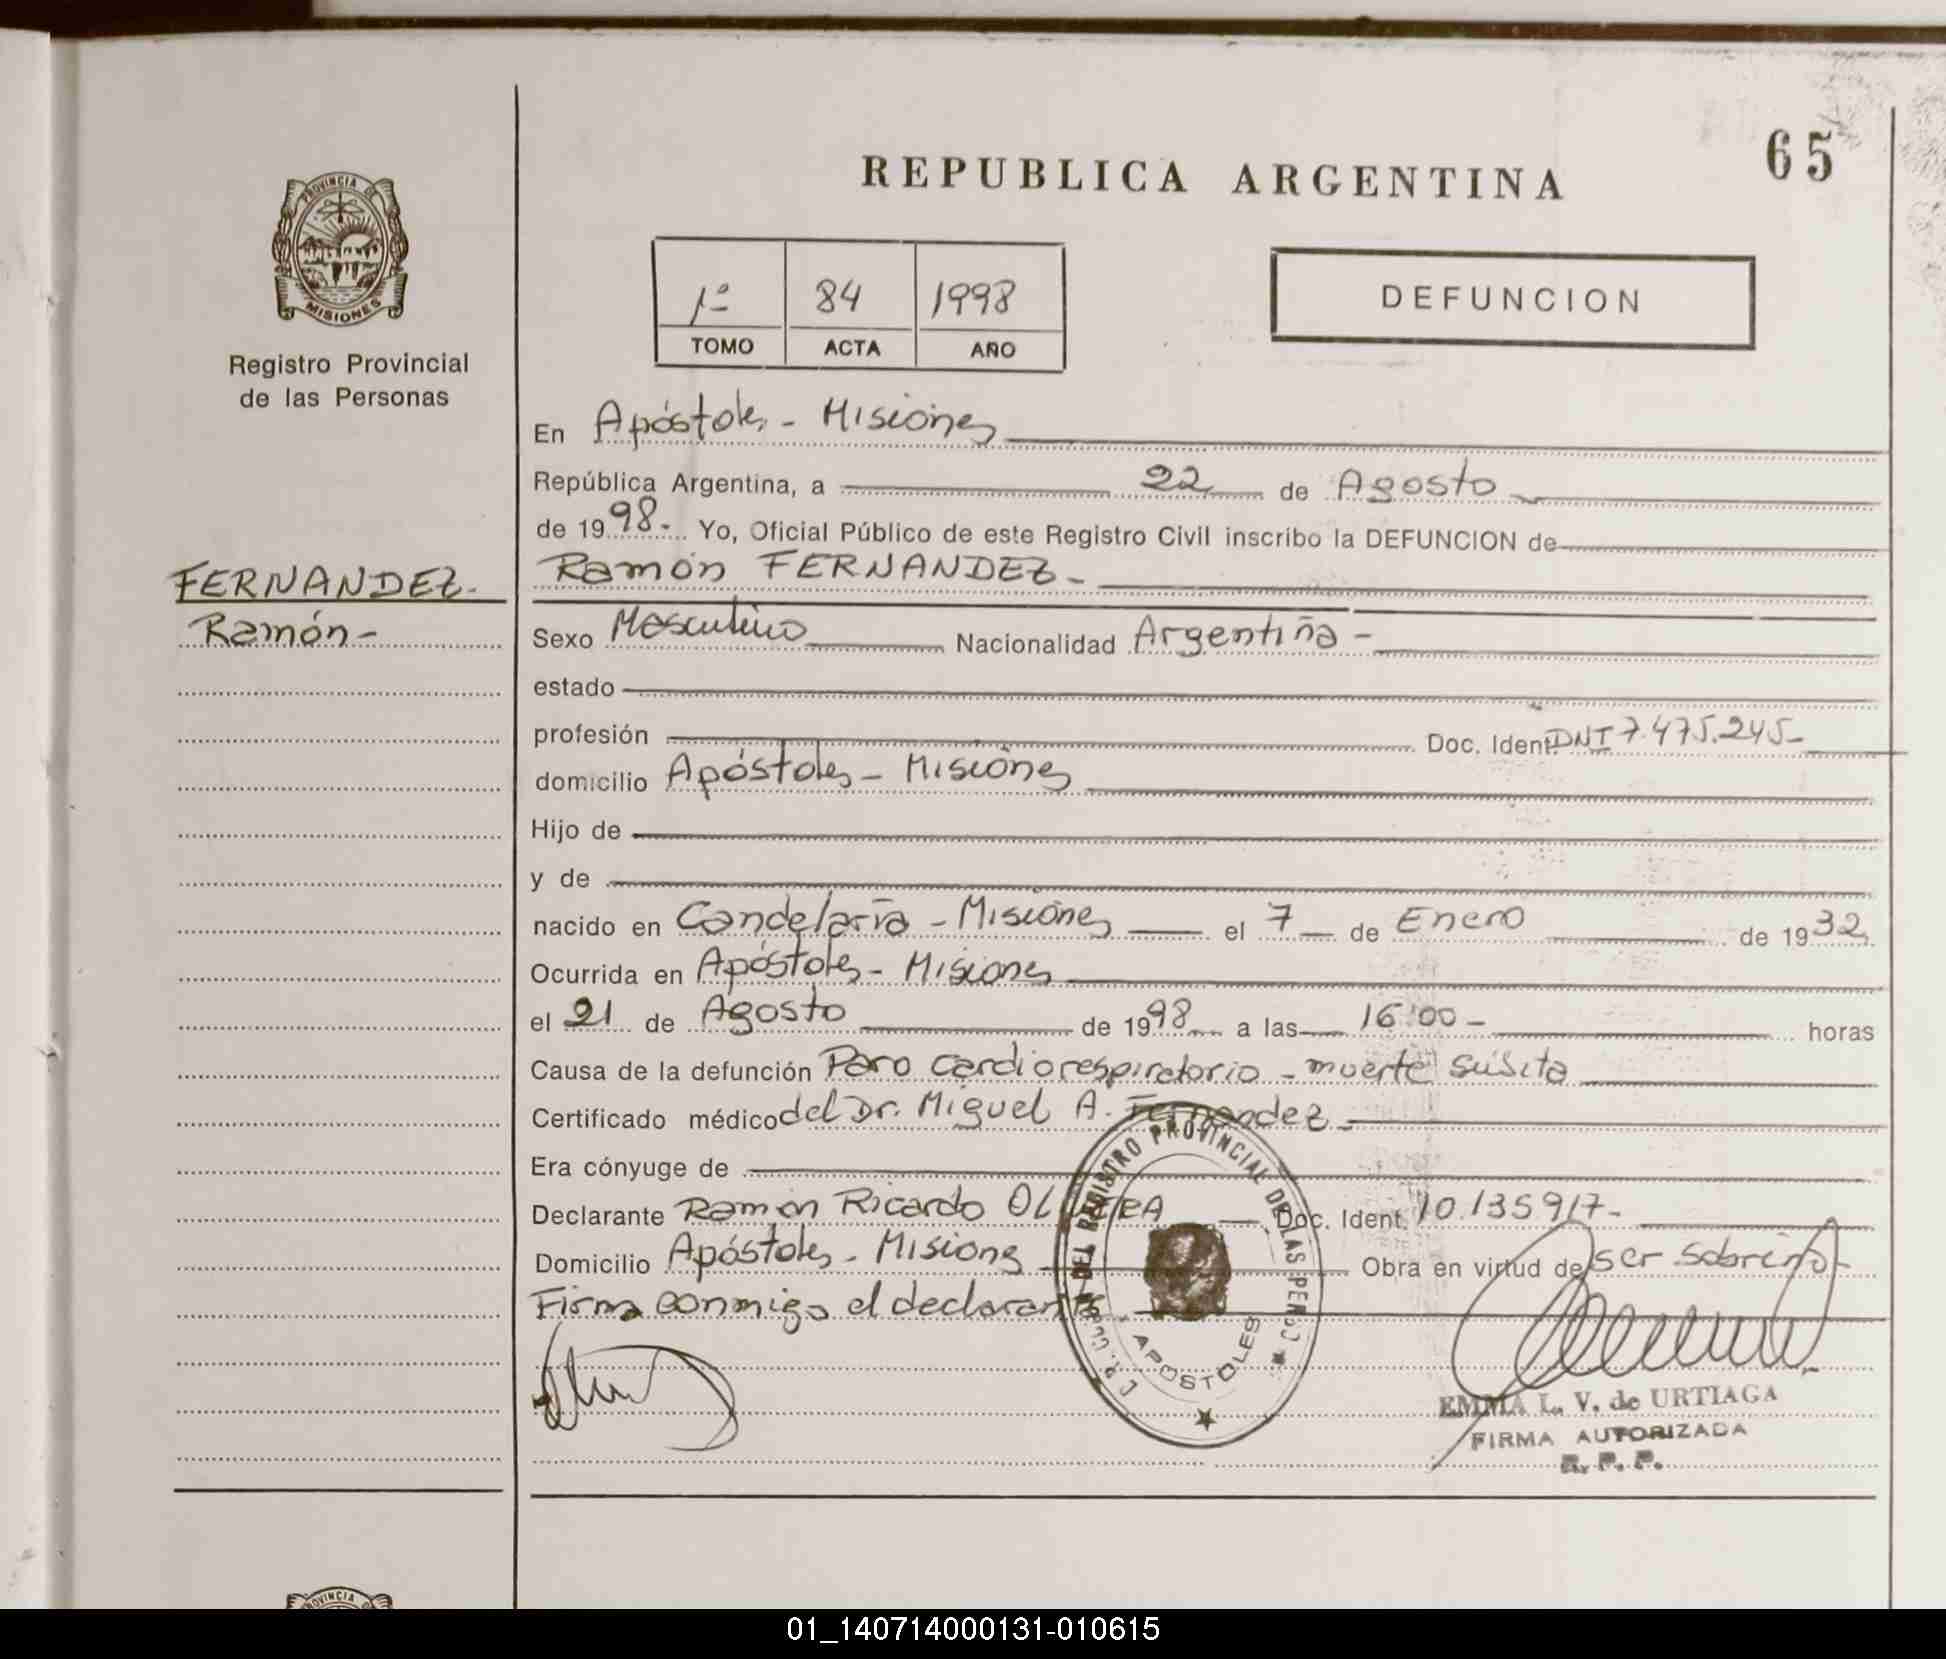 REPUBLICA ARGENTINA
65
PROVINCIA DE
MISIONES
Registro Provincial
de las Personas
1º 84 1998
TOMO ACTA AÑO
DEFUNCION
En Apóstoles - Misiones
República Argentina, a 22 de Agosto
de 1998.- Yo, Oficial Público de este Registro Civil inscribo la DEFUNCION de
FERNANDEZ.
Ramón-
Ramón FERNANDEZ-
Sexo Masculino Nacionalidad Argentina-
estado
profesión Doc. Ident. DNI 7.475.245-
domicilio Apóstoles - Misiones
Hijo de
y de
nacido en Candelaria - Misiones el 7 de Enero de 1932.
Ocurrida en Apóstoles - Misiones
el 21 de Agosto de 1998 a las 16:00- horas
Causa de la defunción Paro cardiorespiratorio - muerte súbita
Certificado médico del Dr. Miguel A. Fernandez-
Era cónyuge de
Declarante Ramón Ricardo Doc. Ident. 10.135917-
Domicilio Apóstoles - Misiones Obra en virtud de ser sobrino-
Firma conmigo el declarante
DEL REGISTRO PROVINCIAL DE LAS PERS
APOSTOLES
EMMA L. V. de URTIAGA
FIRMA AUTORIZADA
R. P. P.
PROVINCIA D
01_140714000131-010615